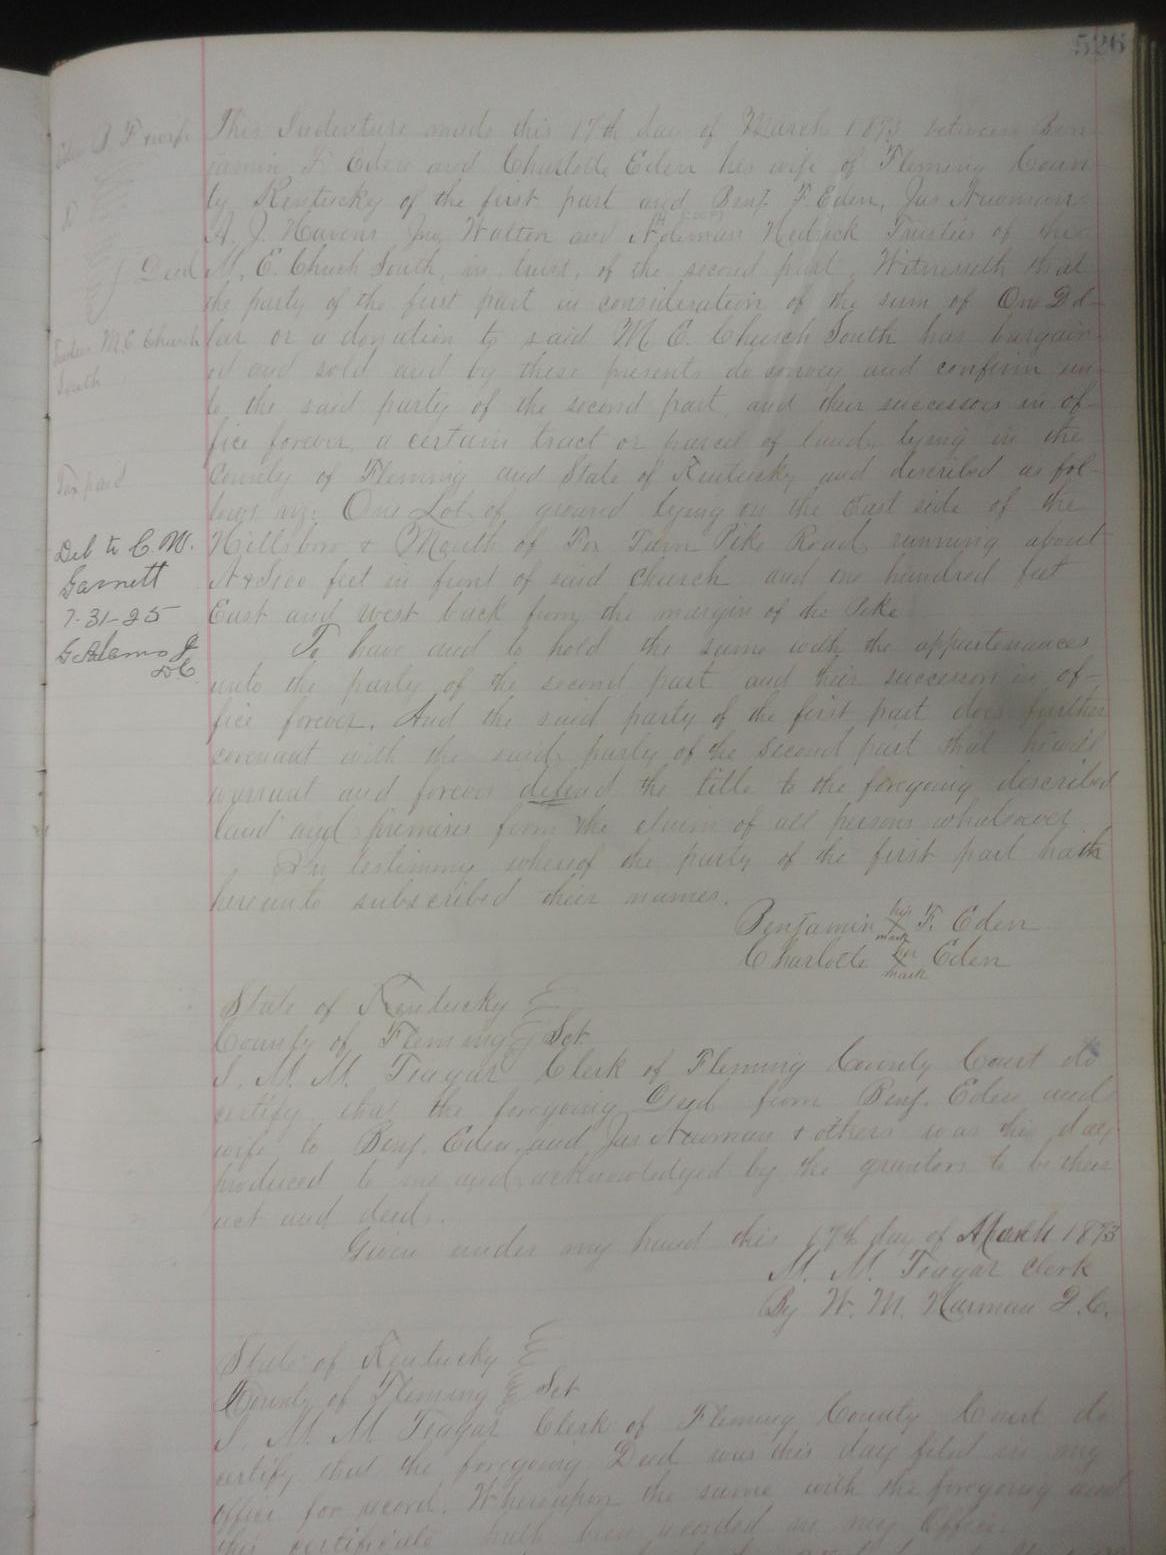 526
B. F. & wife
Deed
Trustees M. E. Church
South
Tax paid
Del to C. W.
Garnett
7-31-25
D C
This Indenture made this 17th day of March 1873 between Ben-
jamin F. Eden and Charlotte Eden his wife of Fleming Coun-
ty Kentucky of the first part and Benj. F. Eden, Jas Newman
A. J. Havens Jno Walton and Hedrick Trustees of the
M. E. Church South, in trust, of the second part, Witnesseth that
the party of the first part in consideration of the sum of One Dol-
lar or a donation to said M. E. Church South has bargain-
ed and sold and by these presents do convey and confirm un-
to the said party of the second part and their successors in of-
fice forever, a certain tract or parcel of land, lying in the
County of Fleming and State of Kentucky and described as fol-
lows viz: One Lot of ground lying on the East side of the
Hillsboro & Mouth of Fox Turn Pike Road, running about
N & S 100 feet in front of said church and one hundred feet
East and west back from the margin of the Pike
To have and to hold the same with the appurtenances
unto the party of the second part and their successors in of-
fice forever. And the said party of the first part does further
covenant with the said party of the second part that he will
warrant and forever defend the title to the foregoing described
land and premises from the claim of all persons whatsoever
In testimony whereof the party of the first part hath
hereunto subscribed their names.
Benjamin his X mark F. Eden
Charlotte her X mark Eden
State of Kentucky
County of Fleming Sct
I, M. M. Teagar Clerk of Fleming County Court do
certify that the foregoing Deed from Benj. Eden and
wife to Benj. Eden and Jas Newman & others was this day
produced to me and acknowledged by the grantors to be their
act and deed.
Given under my hand this 17th day of March 1873
M. M. Teagar Clerk
By W. M. Harman D. C.
State of Kentucky
County of Fleming Sct
I, M. M. Teagar Clerk of Fleming County Court do
certify that the foregoing Deed was this day filed in my
office for record. Whereupon the same with the foregoing and
this certificate hath been recorded in my Office